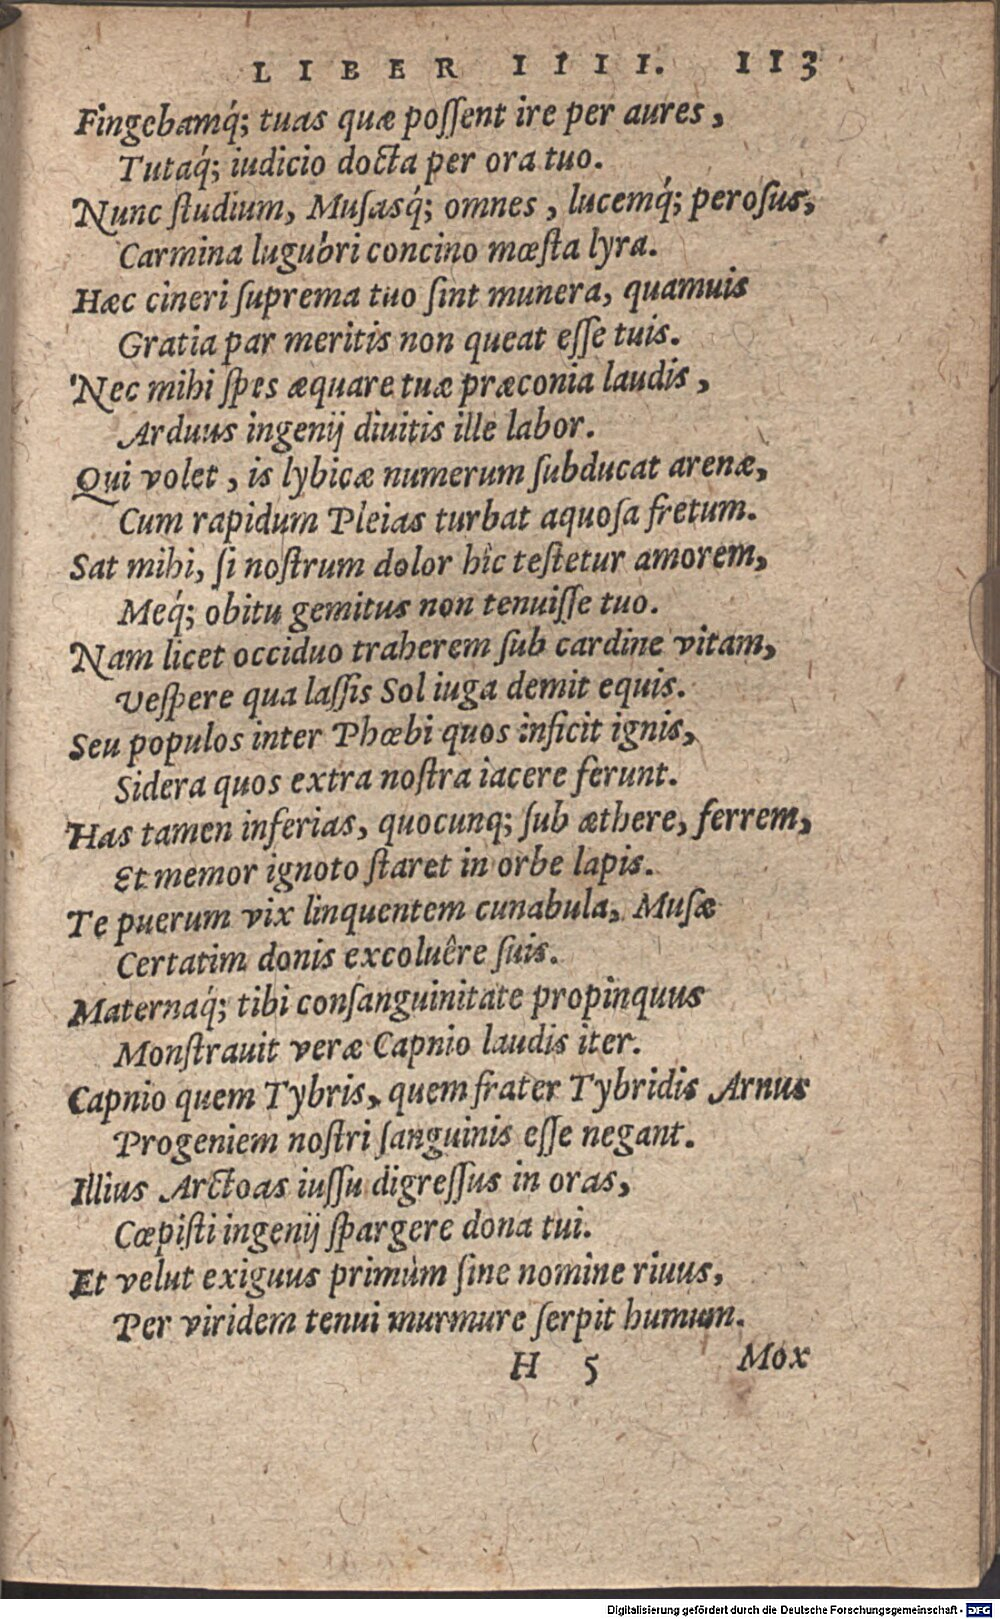 LIBER IIII. 113
Fingebamq́; tuas quæ poſſent ire per aures,
Tutaq́; iudicio docta per ora tuo.
Nunc ſtudium, Muſasq́; omnes, lucemq́; peroſus,
Carmina lugubri concino mœſta lyra.
Hæc cineri ſuprema tuo ſint munera, quamuis
Gratia par meritis non queat eſſe tuis.
Nec mihi ſpes æquare tuæ præconia laudis,
Arduus ingenij diuitis ille labor.
Qui volet, is lybicæ numerum ſubducat arenæ,
Cum rapidum Pleias turbat aquoſa fretum.
Sat mihi, ſi noſtrum dolor hîc teſtetur amorem,
Meq́; obitu gemitus non tenuiſſe tuo.
Nam licet occiduo traherem ſub cardine vitam,
Veſpere qua laſſis Sol iuga demit equis.
Seu populos inter Phœbi quos inficit ignis,
Sidera quos extra noſtra iacere ferunt.
Has tamen inferias, quocunq; ſub æthere, ferrem,
Et memor ignoto ſtaret in orbe lapis.
Te puerum vix linquentem cunabula, Muſæ
Certatim donis excoluêre ſuis.
Maternaq́; tibi conſanguinitate propinquus
Monſtrauit veræ Capnio laudis iter.
Capnio quem Tybris, quem frater Tybridis Arnus
Progeniem noſtri ſanguinis eſſe negant.
Illius Arctoas iuſſu digreſſus in oras,
Cœpiſti ingenij ſpargere dona tui.
Et velut exiguus primùm ſine nomine riuus,
Per viridem tenui murmure ſerpit humum.
H 5 Mox
Digitalisierung gefördert durch die Deutsche Forschungsgemeinschaft - DFG